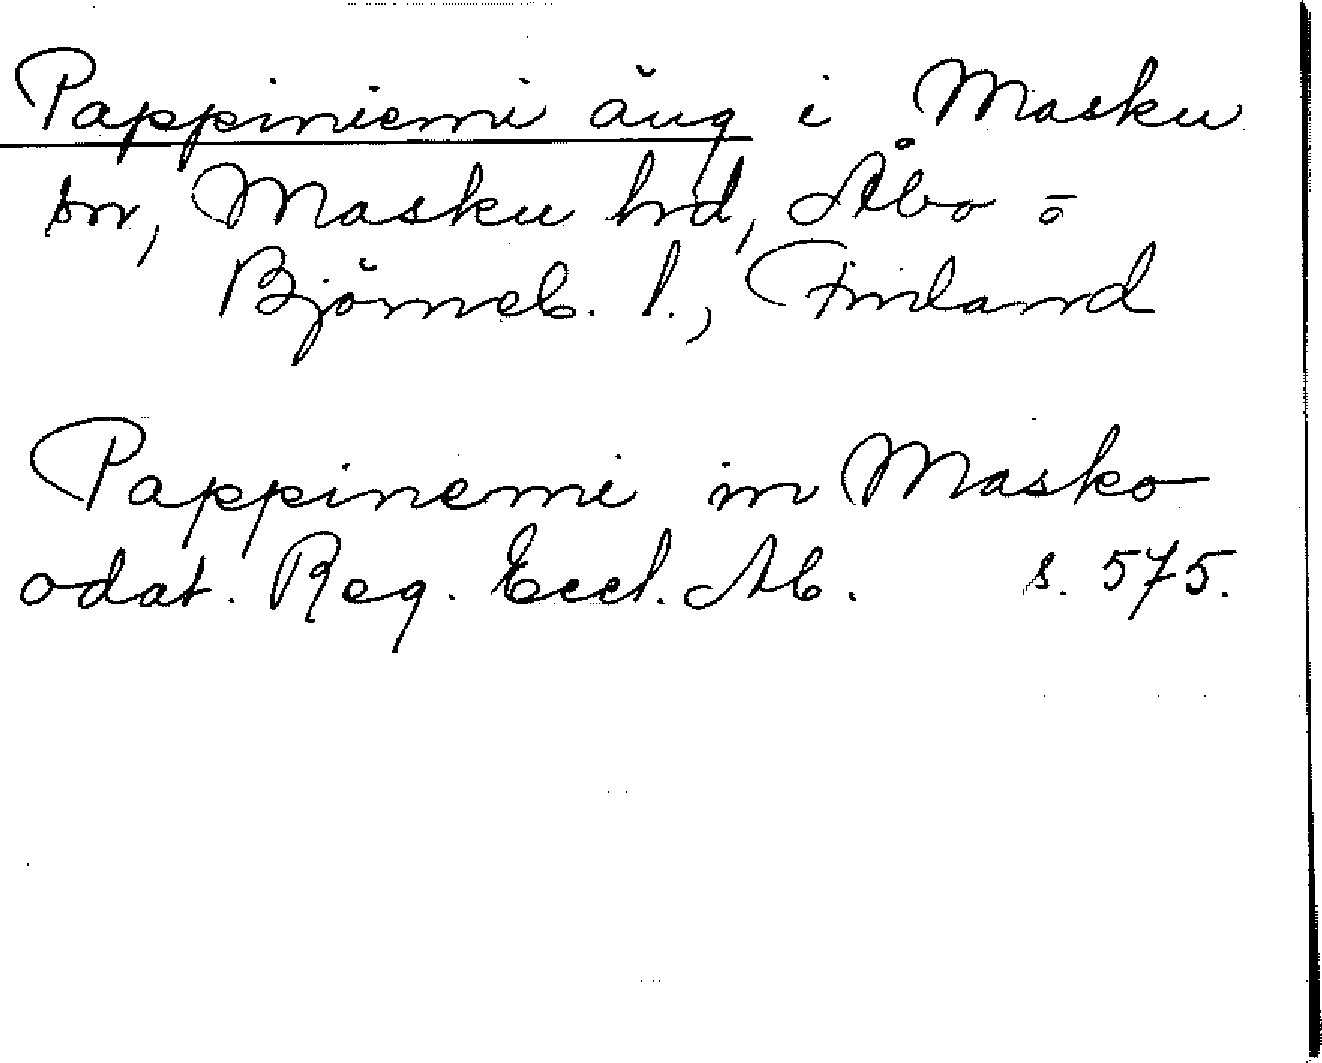 Pappiniemi äng i Masku
sn, Masku hrd, Åbo o
Björneb. l., Finland
Pappinemi in Masko
odat. Reg. Eccl. Ab. s. 575.